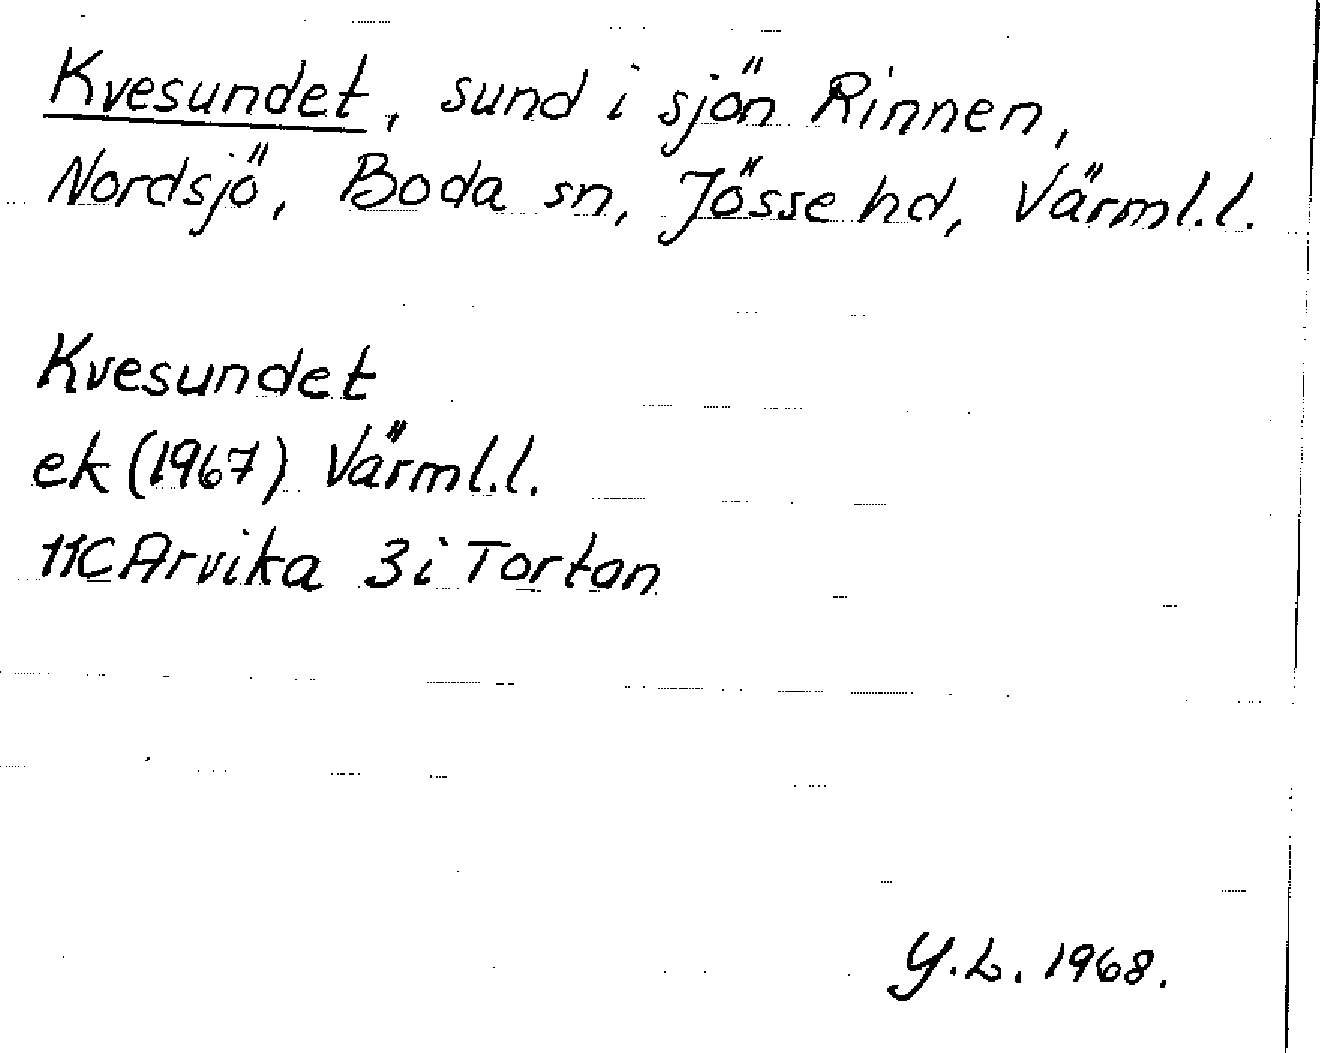 Kvesundet, sund i sjön Rinnen,
Nordsjö, Boda sn, Jösse hd, Värml.l.
Kvesundet
ek (1967) Värml.l.
11C Arvika 3i Tortan
Y.L. 1968.